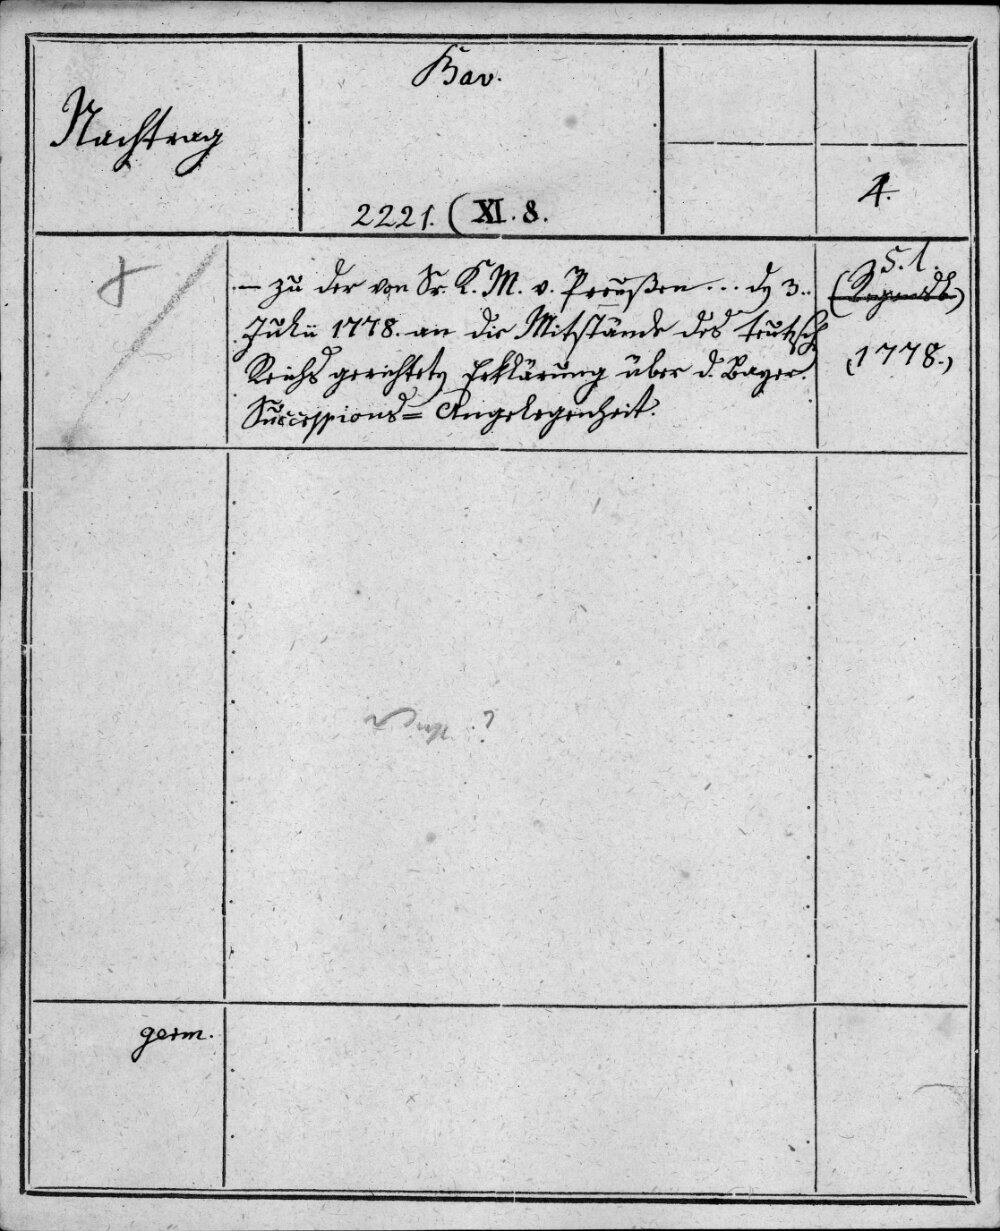 Nachtrag
Bav.
2221. (XI. 8.
4.
— zu der von Sr. K. M. v. Preußen ... dn 3.
Julii 1778. an die Mitstände des teutsch
Reichs gerichteten Erklärung über d. Bayer.
Successions= Angelegenheit.
s. l.
(Regensb.)
(1778.)
germ.